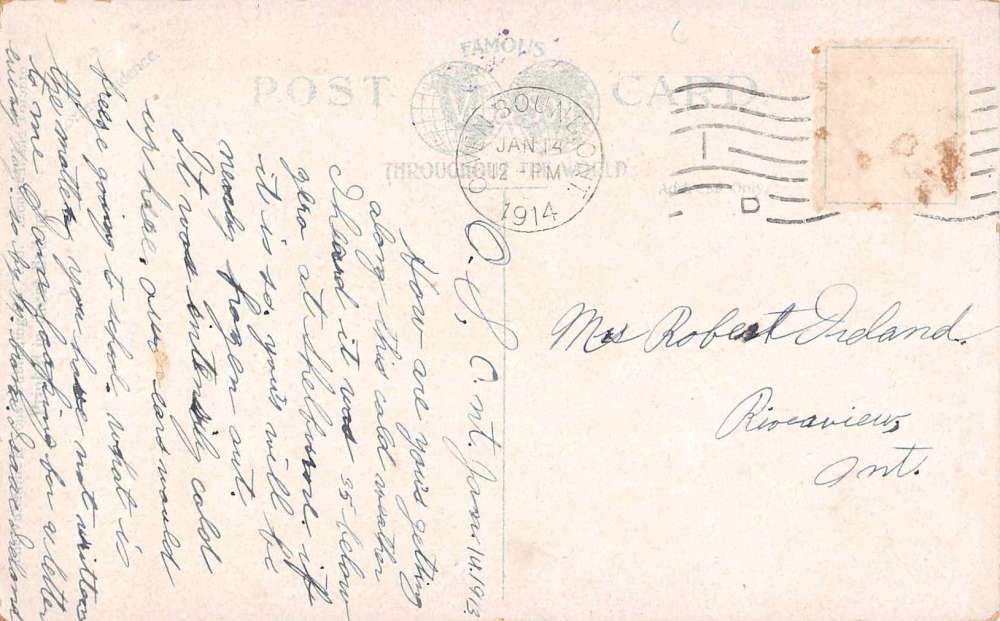 FAMOUS
POST CARD
THROUGHOUT THE WORLD
OWEN SOUND ONT.
JAN 14
12 - PM
1914
D
Address Only
Mrs Robert Ireland.
Riverview,
Ont.
O. S. C. nt. Jan 14. 1913
How are yous geting
along this cold weather
I heard it was 35 below
zero at Shelburne. if
it is so. yous will be
nearly frozen out.
It was intensily cold
up here. our ears would
freese going to school. what is
the matter you have not written
to me I am looking for a letter